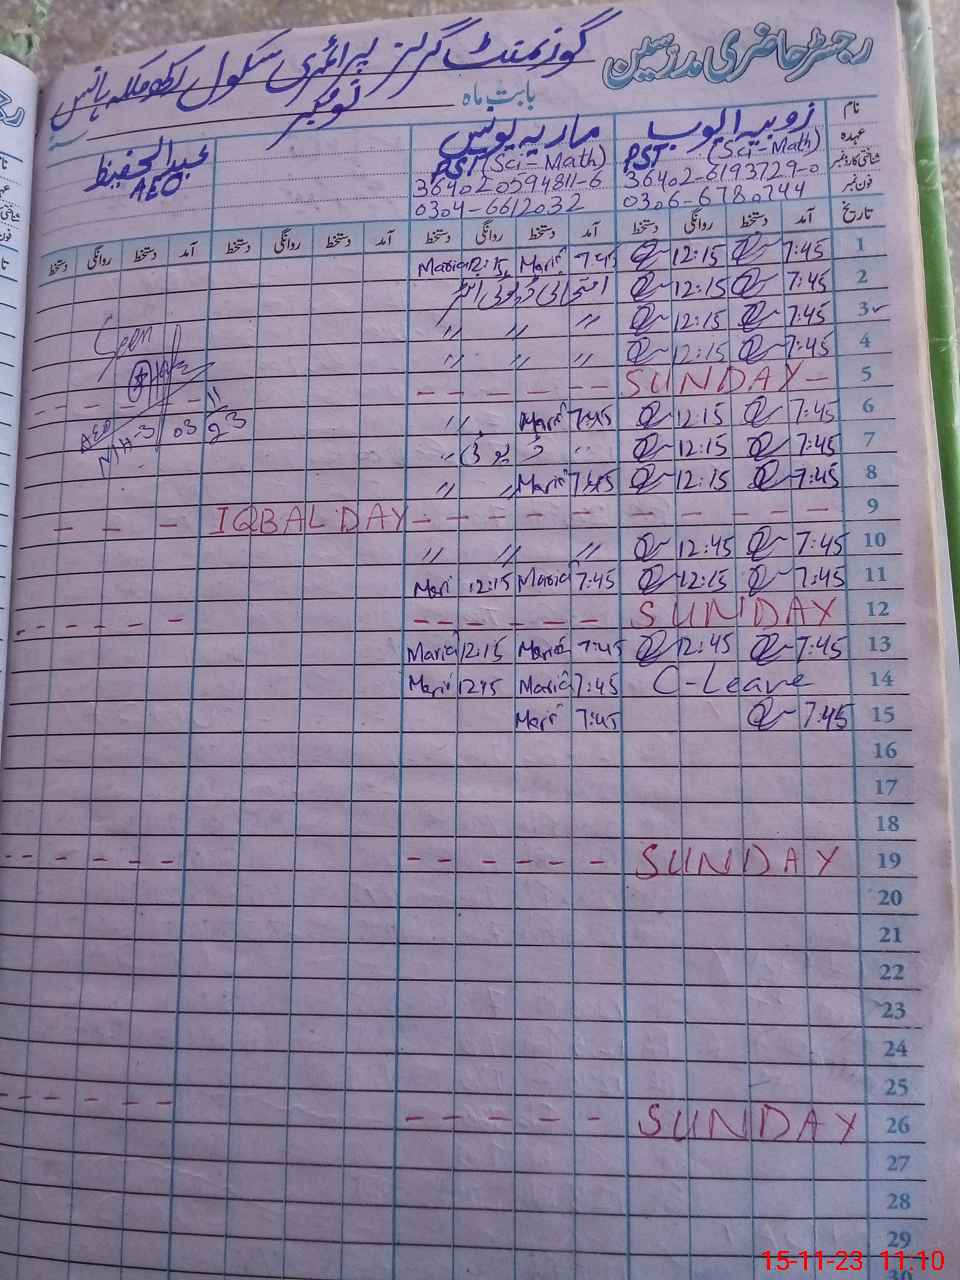 رجسٹر حاضری مدرسین
گورنمنٹ گرلز پرائمری سکول
بابت ماہ نومبر
نام زوبیہ ایوب ماریہ یونس عبدالحفیظ
عہدہ PST (Sci-Math) PST (Sci-Math) AEO
شناختی کارڈ نمبر 36402-6193729-0 364020594811-6
فون نمبر 0306-6780744 0304-6612032
تاریخ آمد دستخط روانگی دستخط آمد دستخط روانگی دستخط آمد دستخط روانگی دستخط آمد دستخط روانگی دستخط
1 7:45 12:15 7:45 Maria 12:15 Maria
2 7:45 12:15
3 7:45 12:15 〃 〃 〃
4 7:45 12:15 〃 〃 〃
5 SUNDAY
6 7:45 12:15 7:45 Maria 〃
7 7:45 12:15 〃 〃
8 7:45 12:15 7:45 Maria 〃 〃
Seen
AEO
03 11 23
9 IQBAL DAY
10 7:45 12:45 〃 〃 〃
11 7:45 12:15 7:45 Maria 12:15 Mari
12 SUNDAY
13 7:45 12:45 7:45 Maria 12:15 Maria
14 C-Leave 7:45 Maria 1215 Mari
15 7:45 7:45 Mari
16
17
18
19 SUNDAY
20
21
22
23
24
25
26 SUNDAY
27
28
29
30
15-11-23 11:10